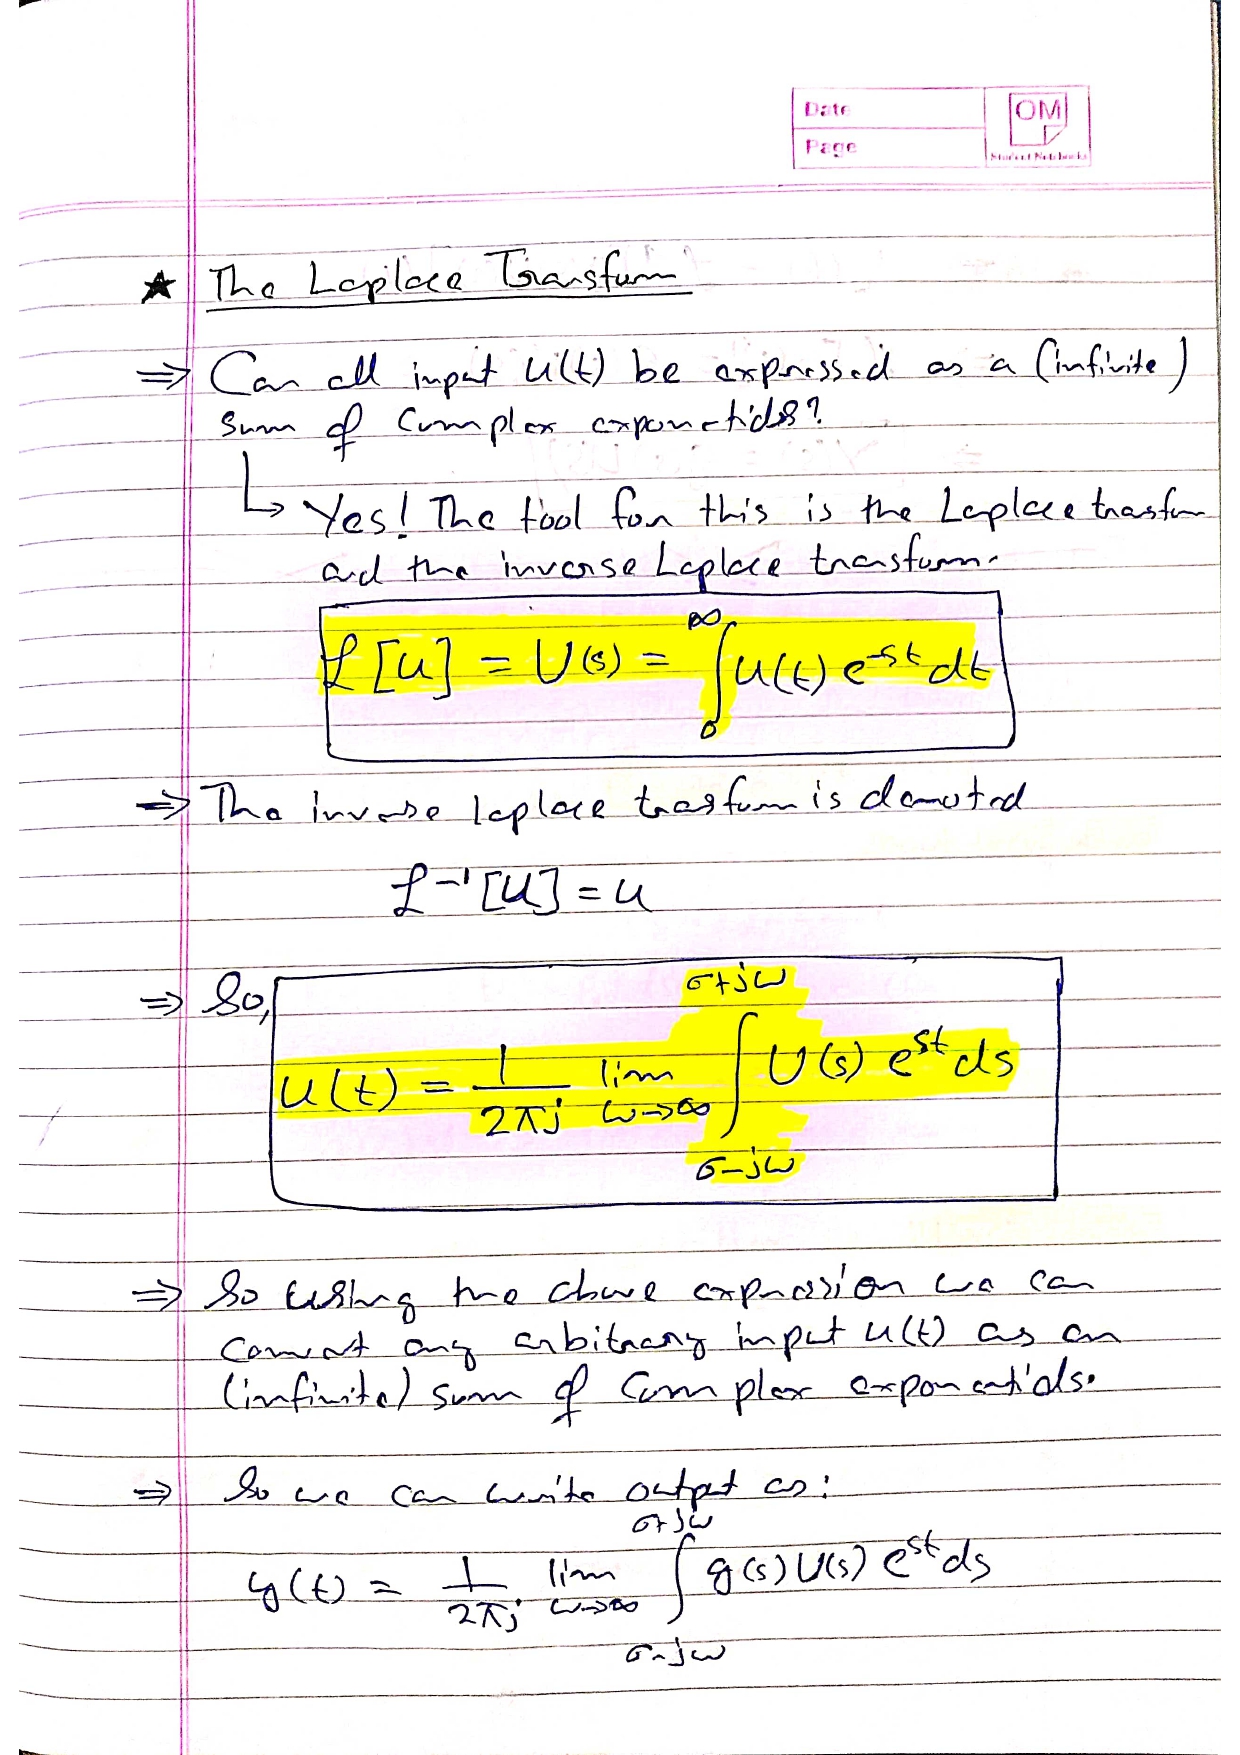 Date
Page
OM
Student Notebooks
★ The Laplace Transform
⇒ Can all input u(t) be expressed as a (infinite)
sum of complex exponetials?
↳ Yes! The tool for this is the Laplace trasfm
and the inverse Laplace transform.
ℒ[u] = U(s) = ∫₀^∞ u(t) e^-st dt
⇒ The inverse laplace trasform is denoted
ℒ⁻¹[U] = u
⇒ So,
u(t) = 1/2πj lim ω→∞ ∫_{σ-jω}^{σ+jω} U(s) e^st ds
⇒ So using the above expression we can
convert any arbitrary input u(t) as an
(infinite) sum of complex exponentials.
⇒ So we can write output as:
y(t) = 1/2πj lim ω→∞ ∫_{σ-jω}^{σ+jω} g(s) U(s) e^st ds